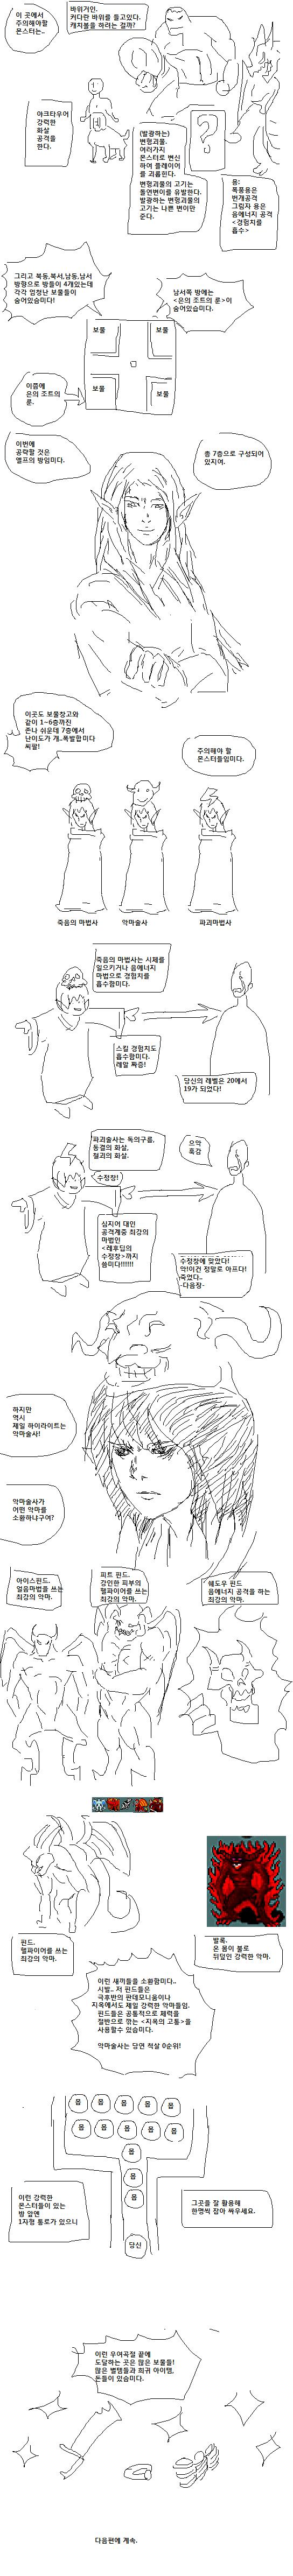 이 곳에서
주의해야할
몬스터는..
바위거인.
커다란 바위를 들고있다.
캐치볼을 하려는 걸까?
야크타우어
강력한
화살
공격을
한다.
(발광하는)
변형괴물.
여러가지
몬스터로 변신
하여 플레이어
를 괴롭힌다.
변형괴물의 고기는
돌연변이를 유발한다.
발광하는 변형괴물의
고기는 나쁜 변이만
준다.
?
용:
폭풍용은
번개공격
그림자 용은
음에너지 공격
<경험치를
흡수>
그리고 북동,북서,남동,남서
방향으로 방들이 4개있는데
각각 엄청난 보물들이
숨어있습미다!
남서쪽 방에는
<은의 조트의 룬>이
숨어있습미다.
보물
보물
보물
보물
이쯤에
은의 조트의
룬.
이번에
공략할 것은
엘프의 방임미다.
총 7층으로 구성되어
있지여.
이곳도 보물창고와
같이 1~6층까진
존나 쉬운데 7층에서
난이도가 개..폭발합미다
씨팔!
주의해야 할
몬스터들임미다.
죽음의 마법사
악마술사
파괴마법사
죽음의 마법사는 시체를
일으키거나 음에너지
마법으로 경험치를
흡수함미다.
스킬 경험치도
흡수함미다.
레알 짜증!
당신의 레벨은 20에서
19가 되었다!
파괴술사는 독의구름,
동결의 화살,
철괴의 화살.
수정창!
으악
흑강
심지어 대인
공격계중 최강의
마법인
<레후딥의
수정창>까지
씀미다!!!!!!
수정창에 맞았다!
악!이건 정말로 아프다!
죽었다..
-다음장-
하지만
역시
제일 하이라이트는
악마술사!
악마술사가
어떤 악마를
소환하냐구여?
아이스핀드.
얼음마법을 쓰는
최강의 악마.
피트 핀드.
강인한 피부의
헬파이어를 쓰는
최강의 악마.
쉐도우 핀드
음에너지 공격을 하는
최강의 악마.
핀드.
헬파이어를 쓰는
최강의 악마.
발록.
온 몸이 불로
뒤덮인 강력한 악마.
이런 새끼들을 소환함미다..
시발.. 저 핀드들은
극후반의 판데모니움이나
지옥에서도 제일 강력한 악마들임.
핀드들은 공통적으로 체력을
절반으로 깎는 <지옥의 고통>을
사용할수 있습미다.
악마술사는 당연 척살 0순위!
몹
몹
몹
몹
몹
몹
몹
몹
몹
몹
몹
몹
몹
당신
이런 강력한
몬스터들이 있는
방 앞엔
1자형 통로가 있으니
그곳을 잘 활용해
한명씩 잡아 싸우세요.
이런 우여곡절 끝에
도달하는 곳은 많은 보물들!
많은 벨템들과 희귀 아이템,
돈들이 있습미다.
다음편에 계속.